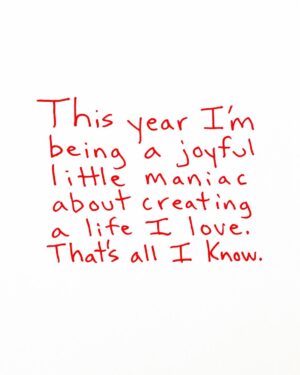 This year I'm
being a joyful
little maniac
about creating
a life I love.
That's all I know.